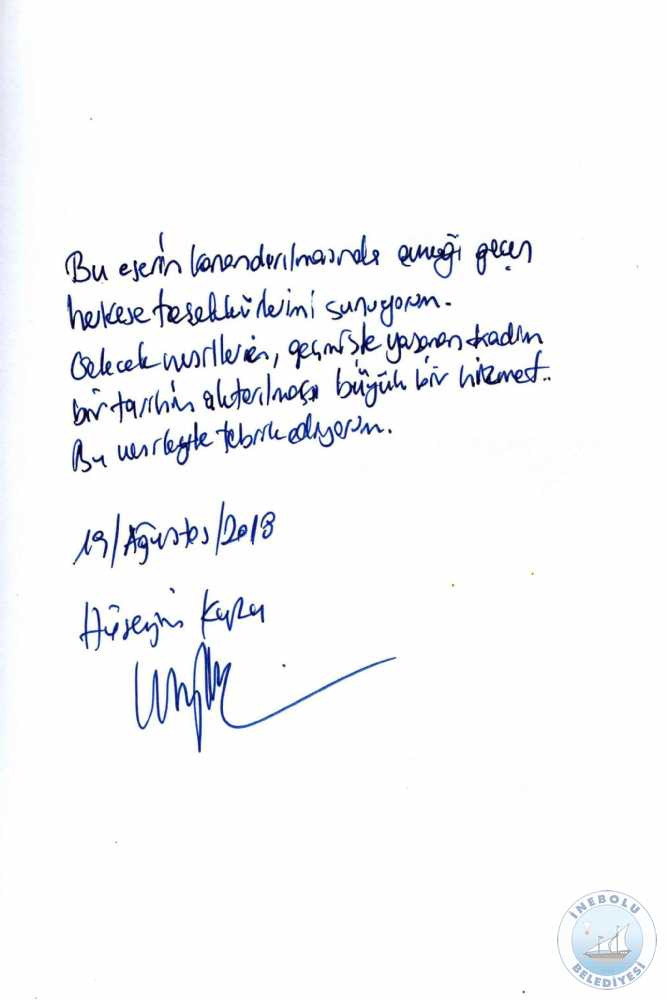 Bu eserin kazandırılmasında emeği geçen
herkese teşekkürlerimi sunuyorum.
Gelecek nesillerin, geçmişte yaşanan kadim
bir tarihin aktarılması büyük bir hizmet..
Bu vesileyle tebrik ediyorum.
19/Ağustos/2018
Hüseyin
İNEBOLU
BELEDİYESİ